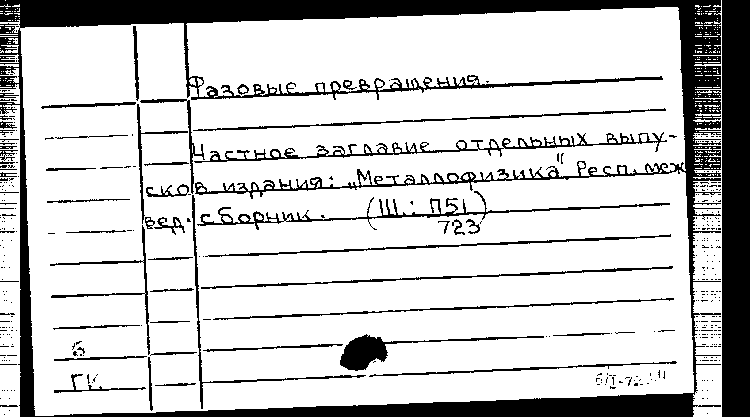 Фазовые превращения.
Частное заглавие отдельных выпу-
сков издания: „Металлофизика". Респ. меж
вед. сборник. (Ш.: П51
723)
б
ГК.